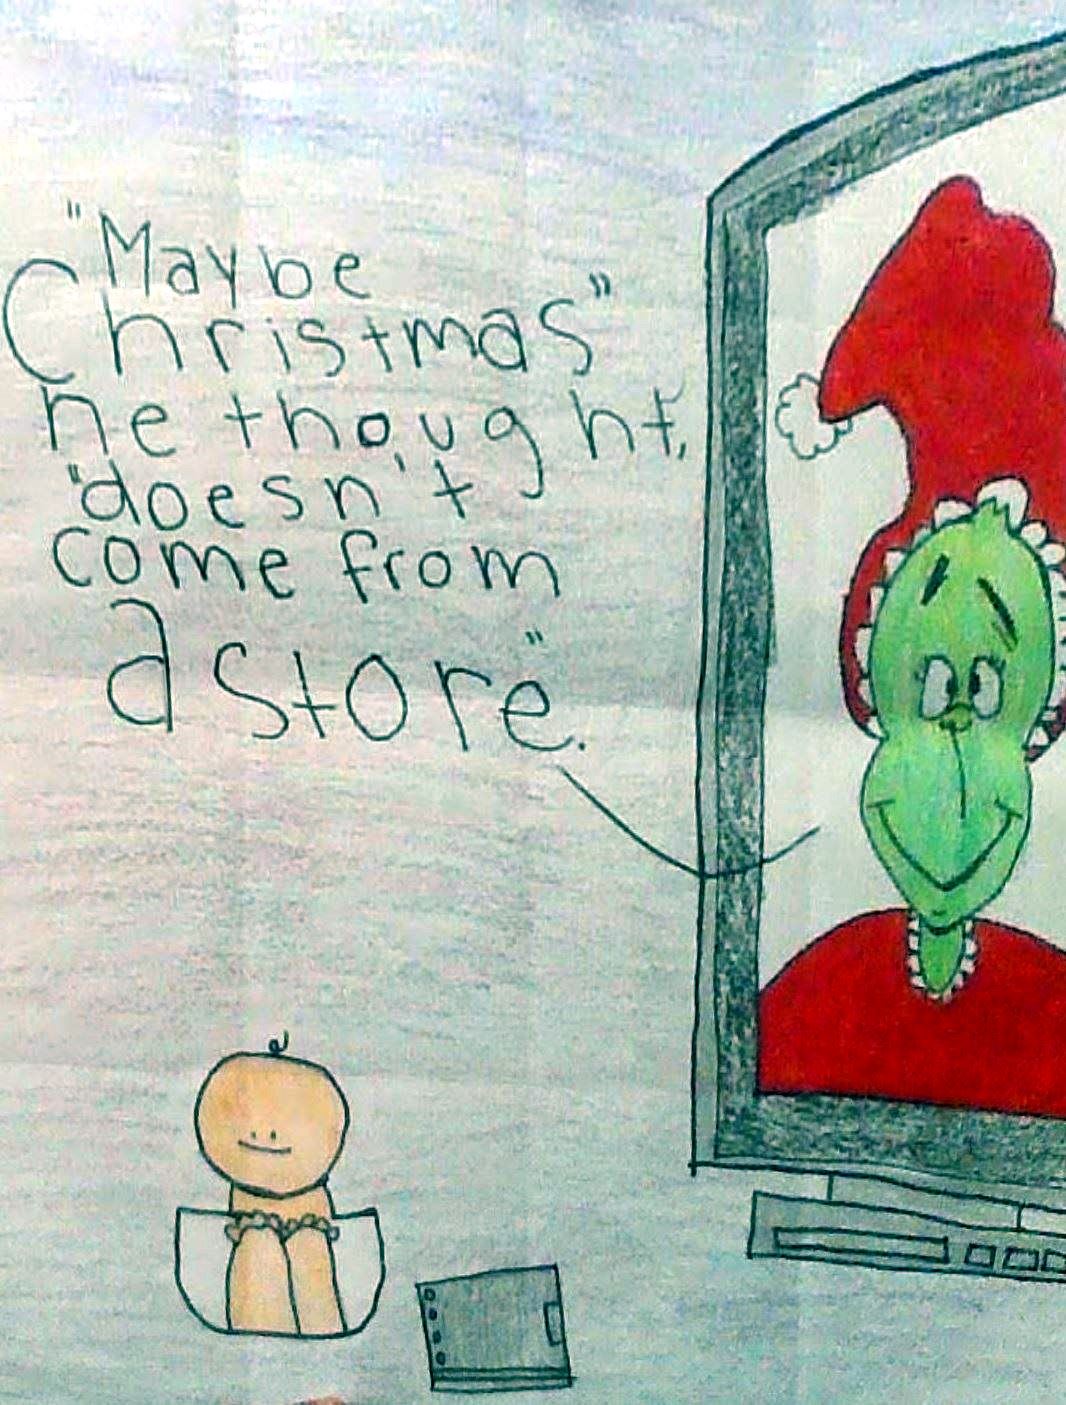 "Maybe
Christmas"
he thought,
"doesn't
come from
a store".